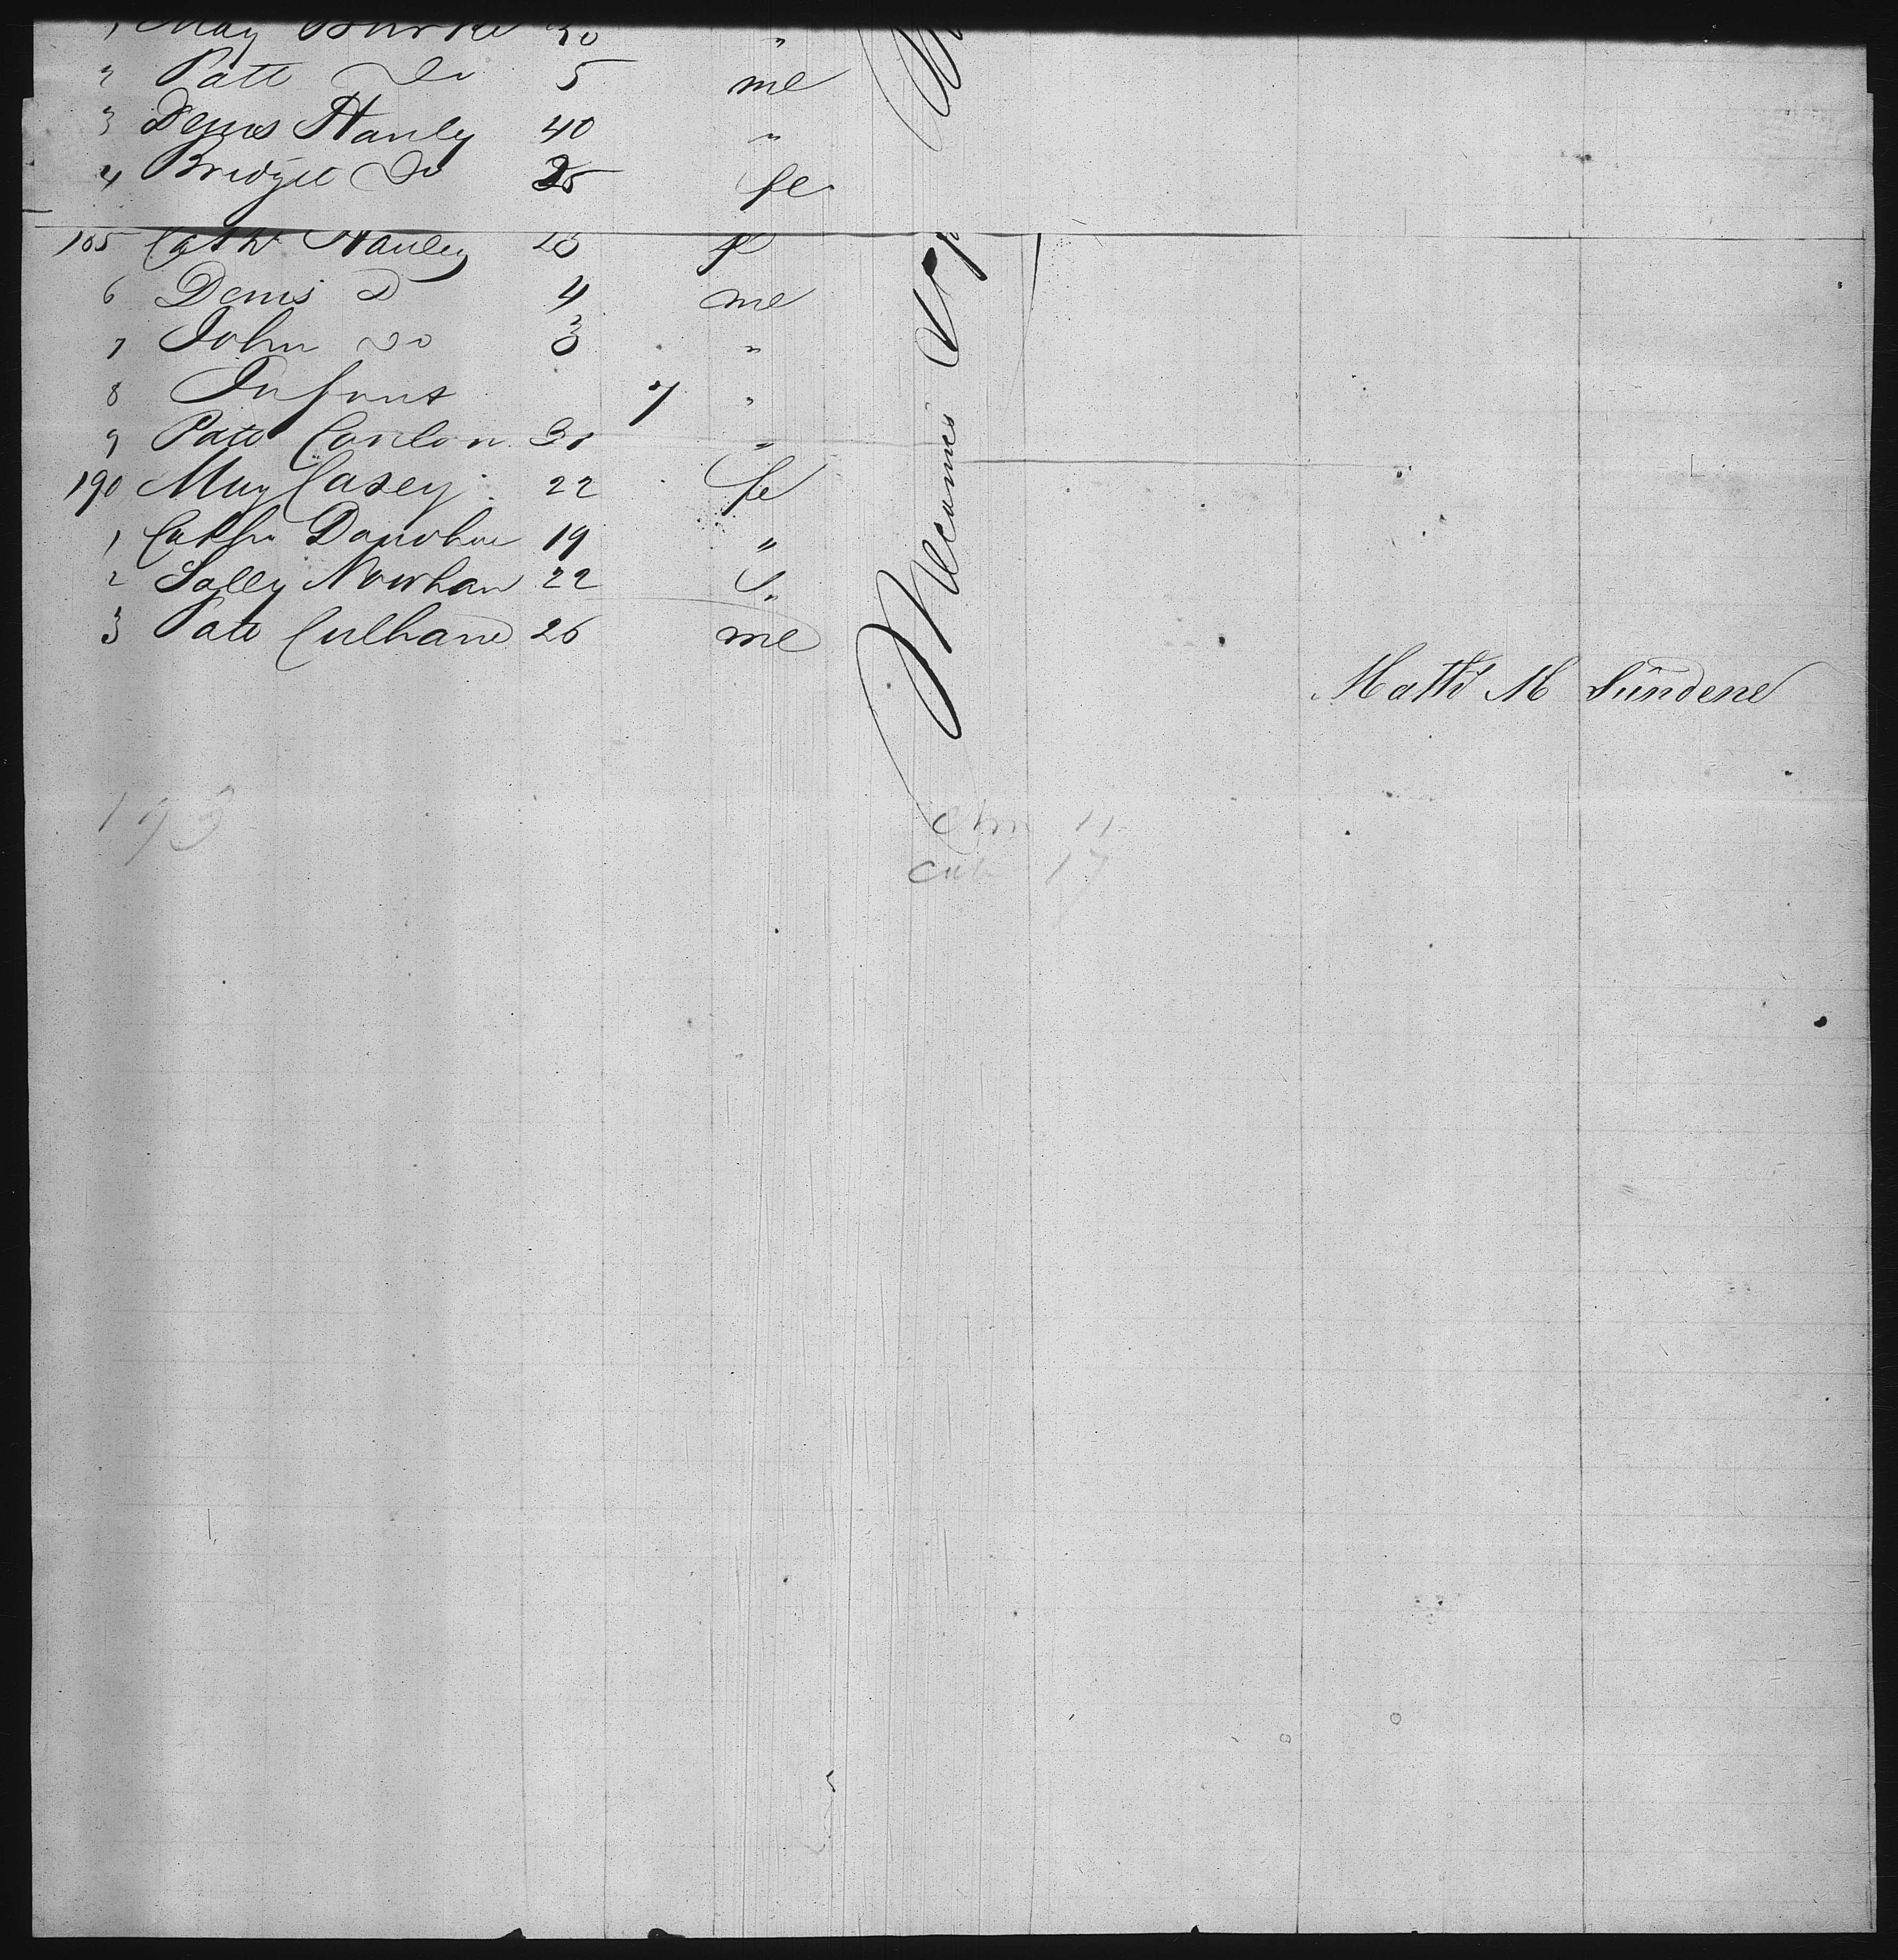 1 May Burke 30 "
2 Patt Do 5 me
3 Denis Hanly 40 "
4 Bridget Do 25 fe
185 Cath Hanley 23 fe
6 Denis D 4 me
7 John Do 3 "
8 Infant 7 "
9 Patt Conlon "
190 May Casey 22 fe
1 Cathr Donohue 19 "
2 Sally Nowhan 22 "
3 Patt Culhane 26 me
Mecanics
Matts M Sundene
193
17